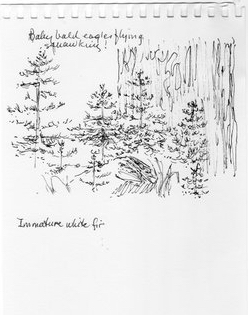 Baby bald eagles flying
squawking!
Immature white fir